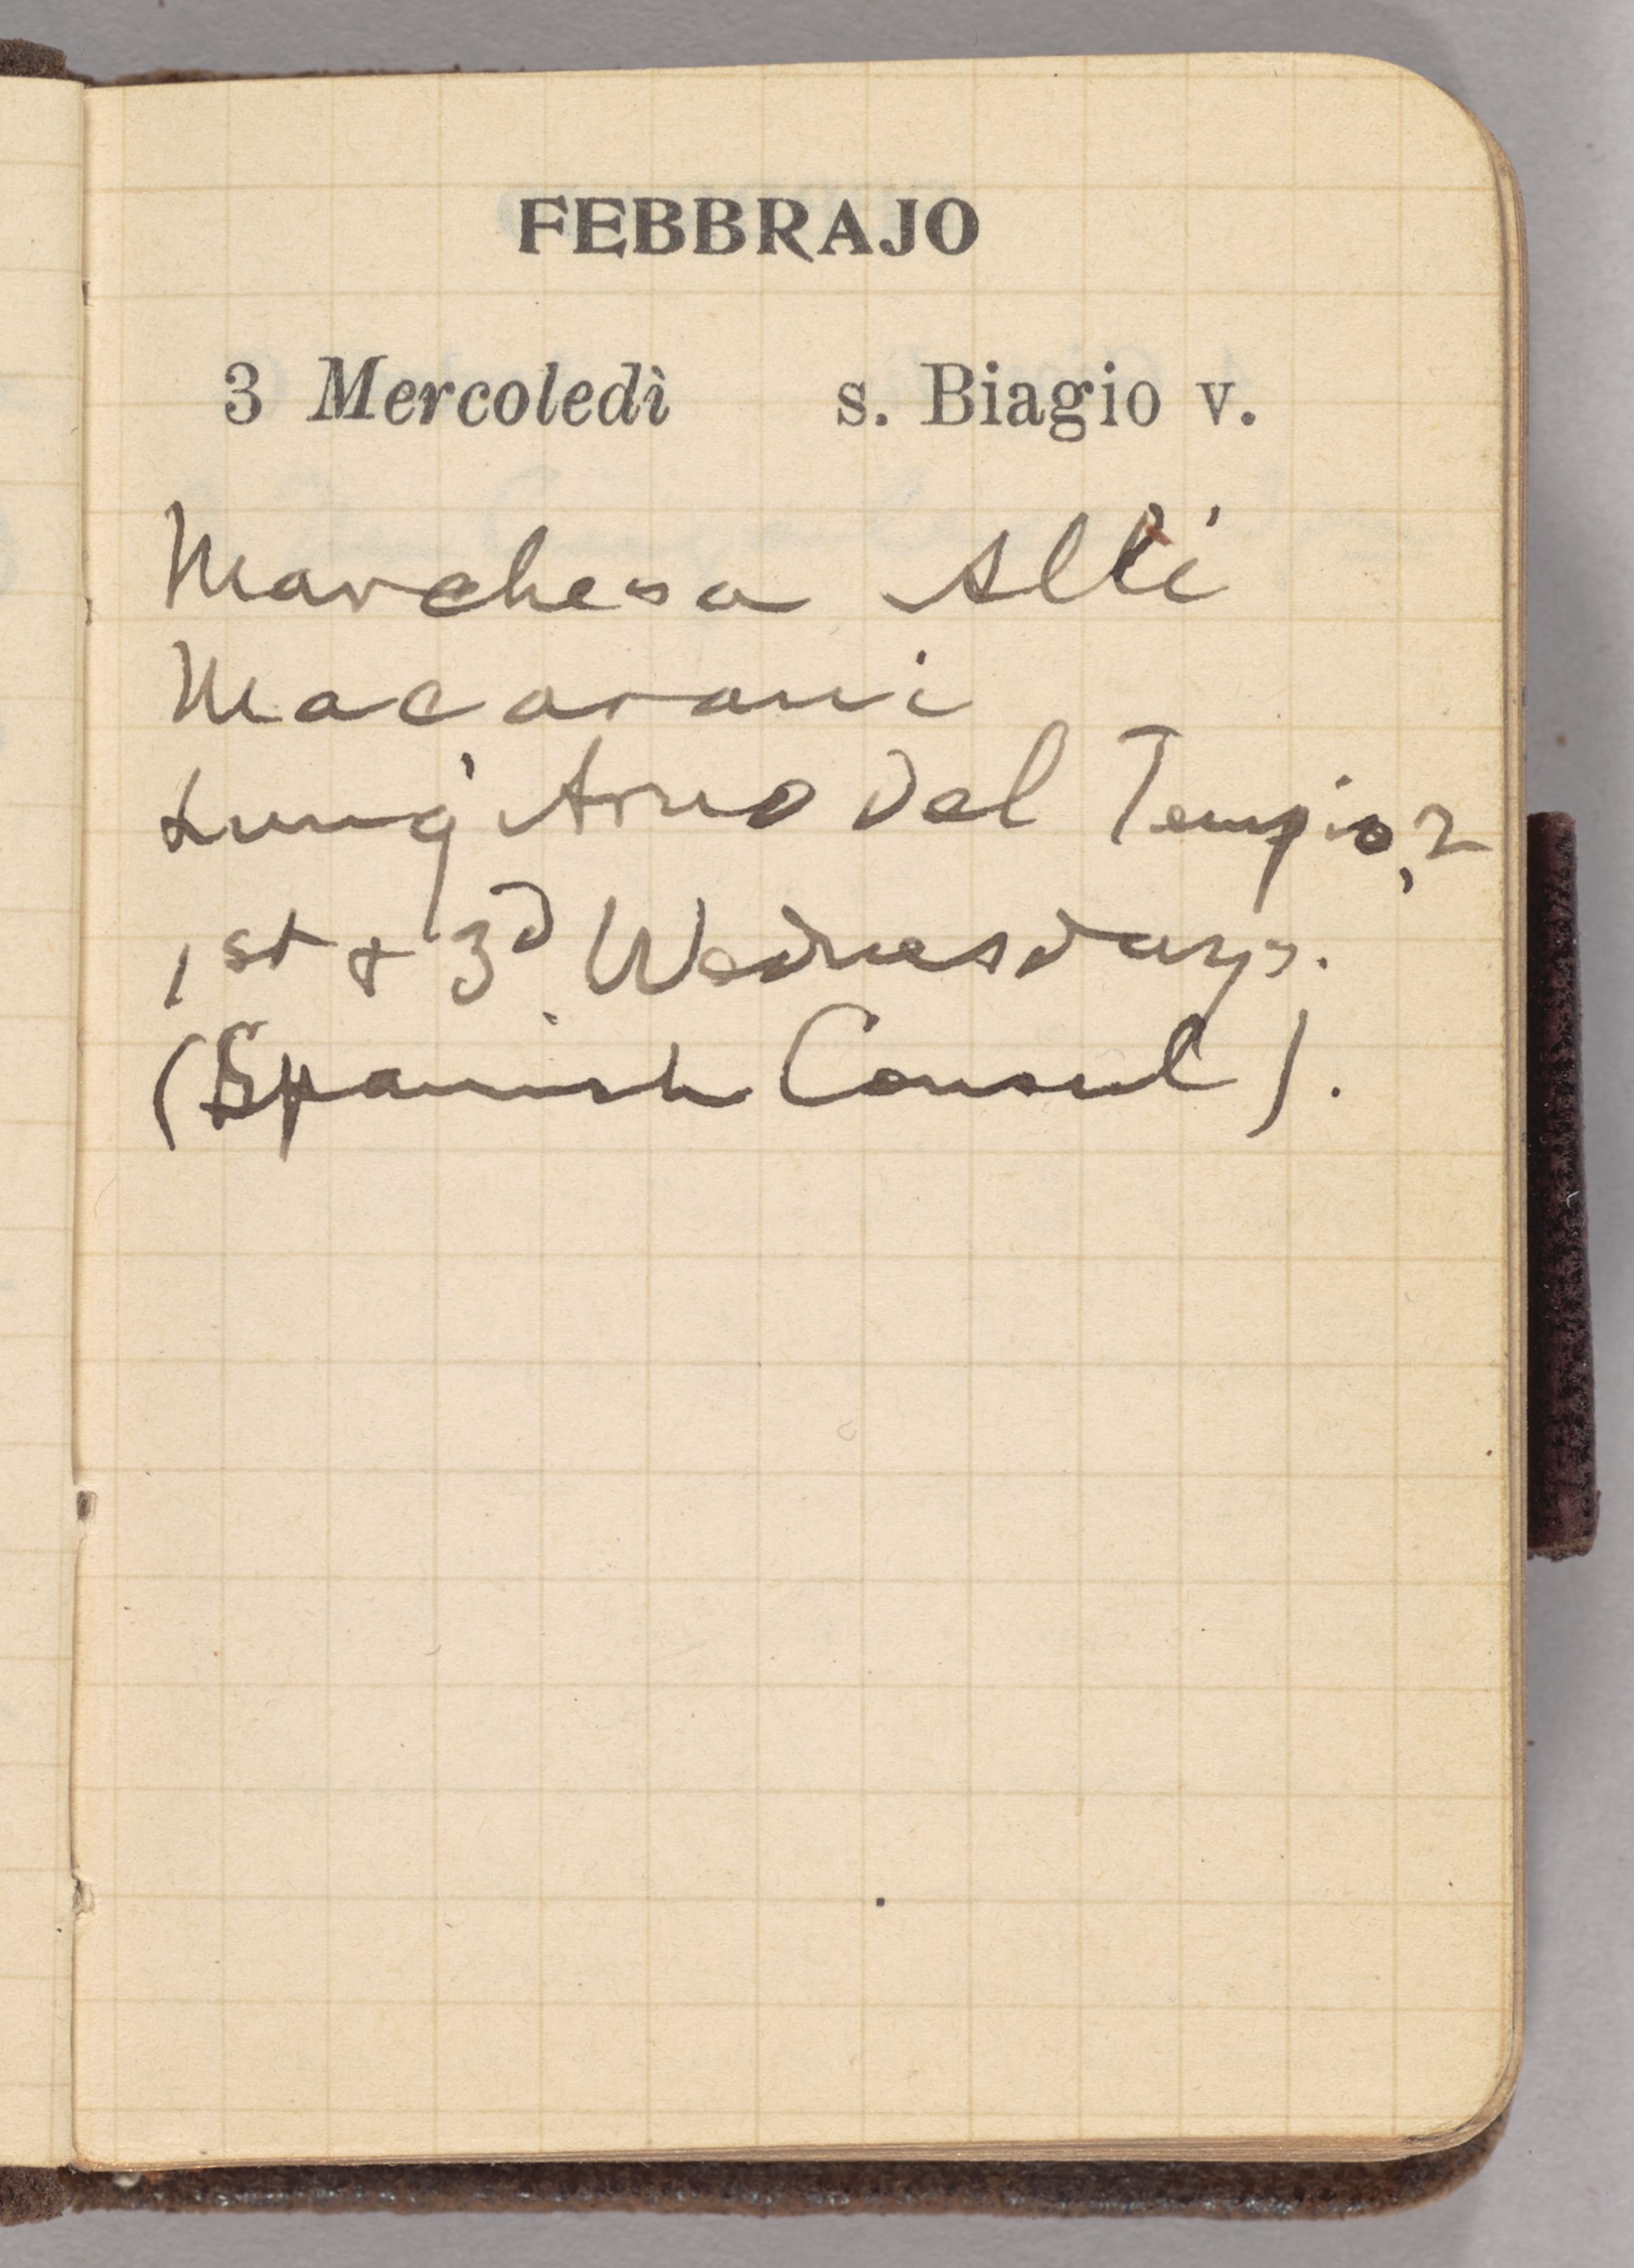 FEBBRAJO
3 Mercoledì s. Biagio v.
Marchesa Alli
Macarani
Lung' Arno del Tempio, 2
1st & 3d Wednesdays.
(Spanish Consul).